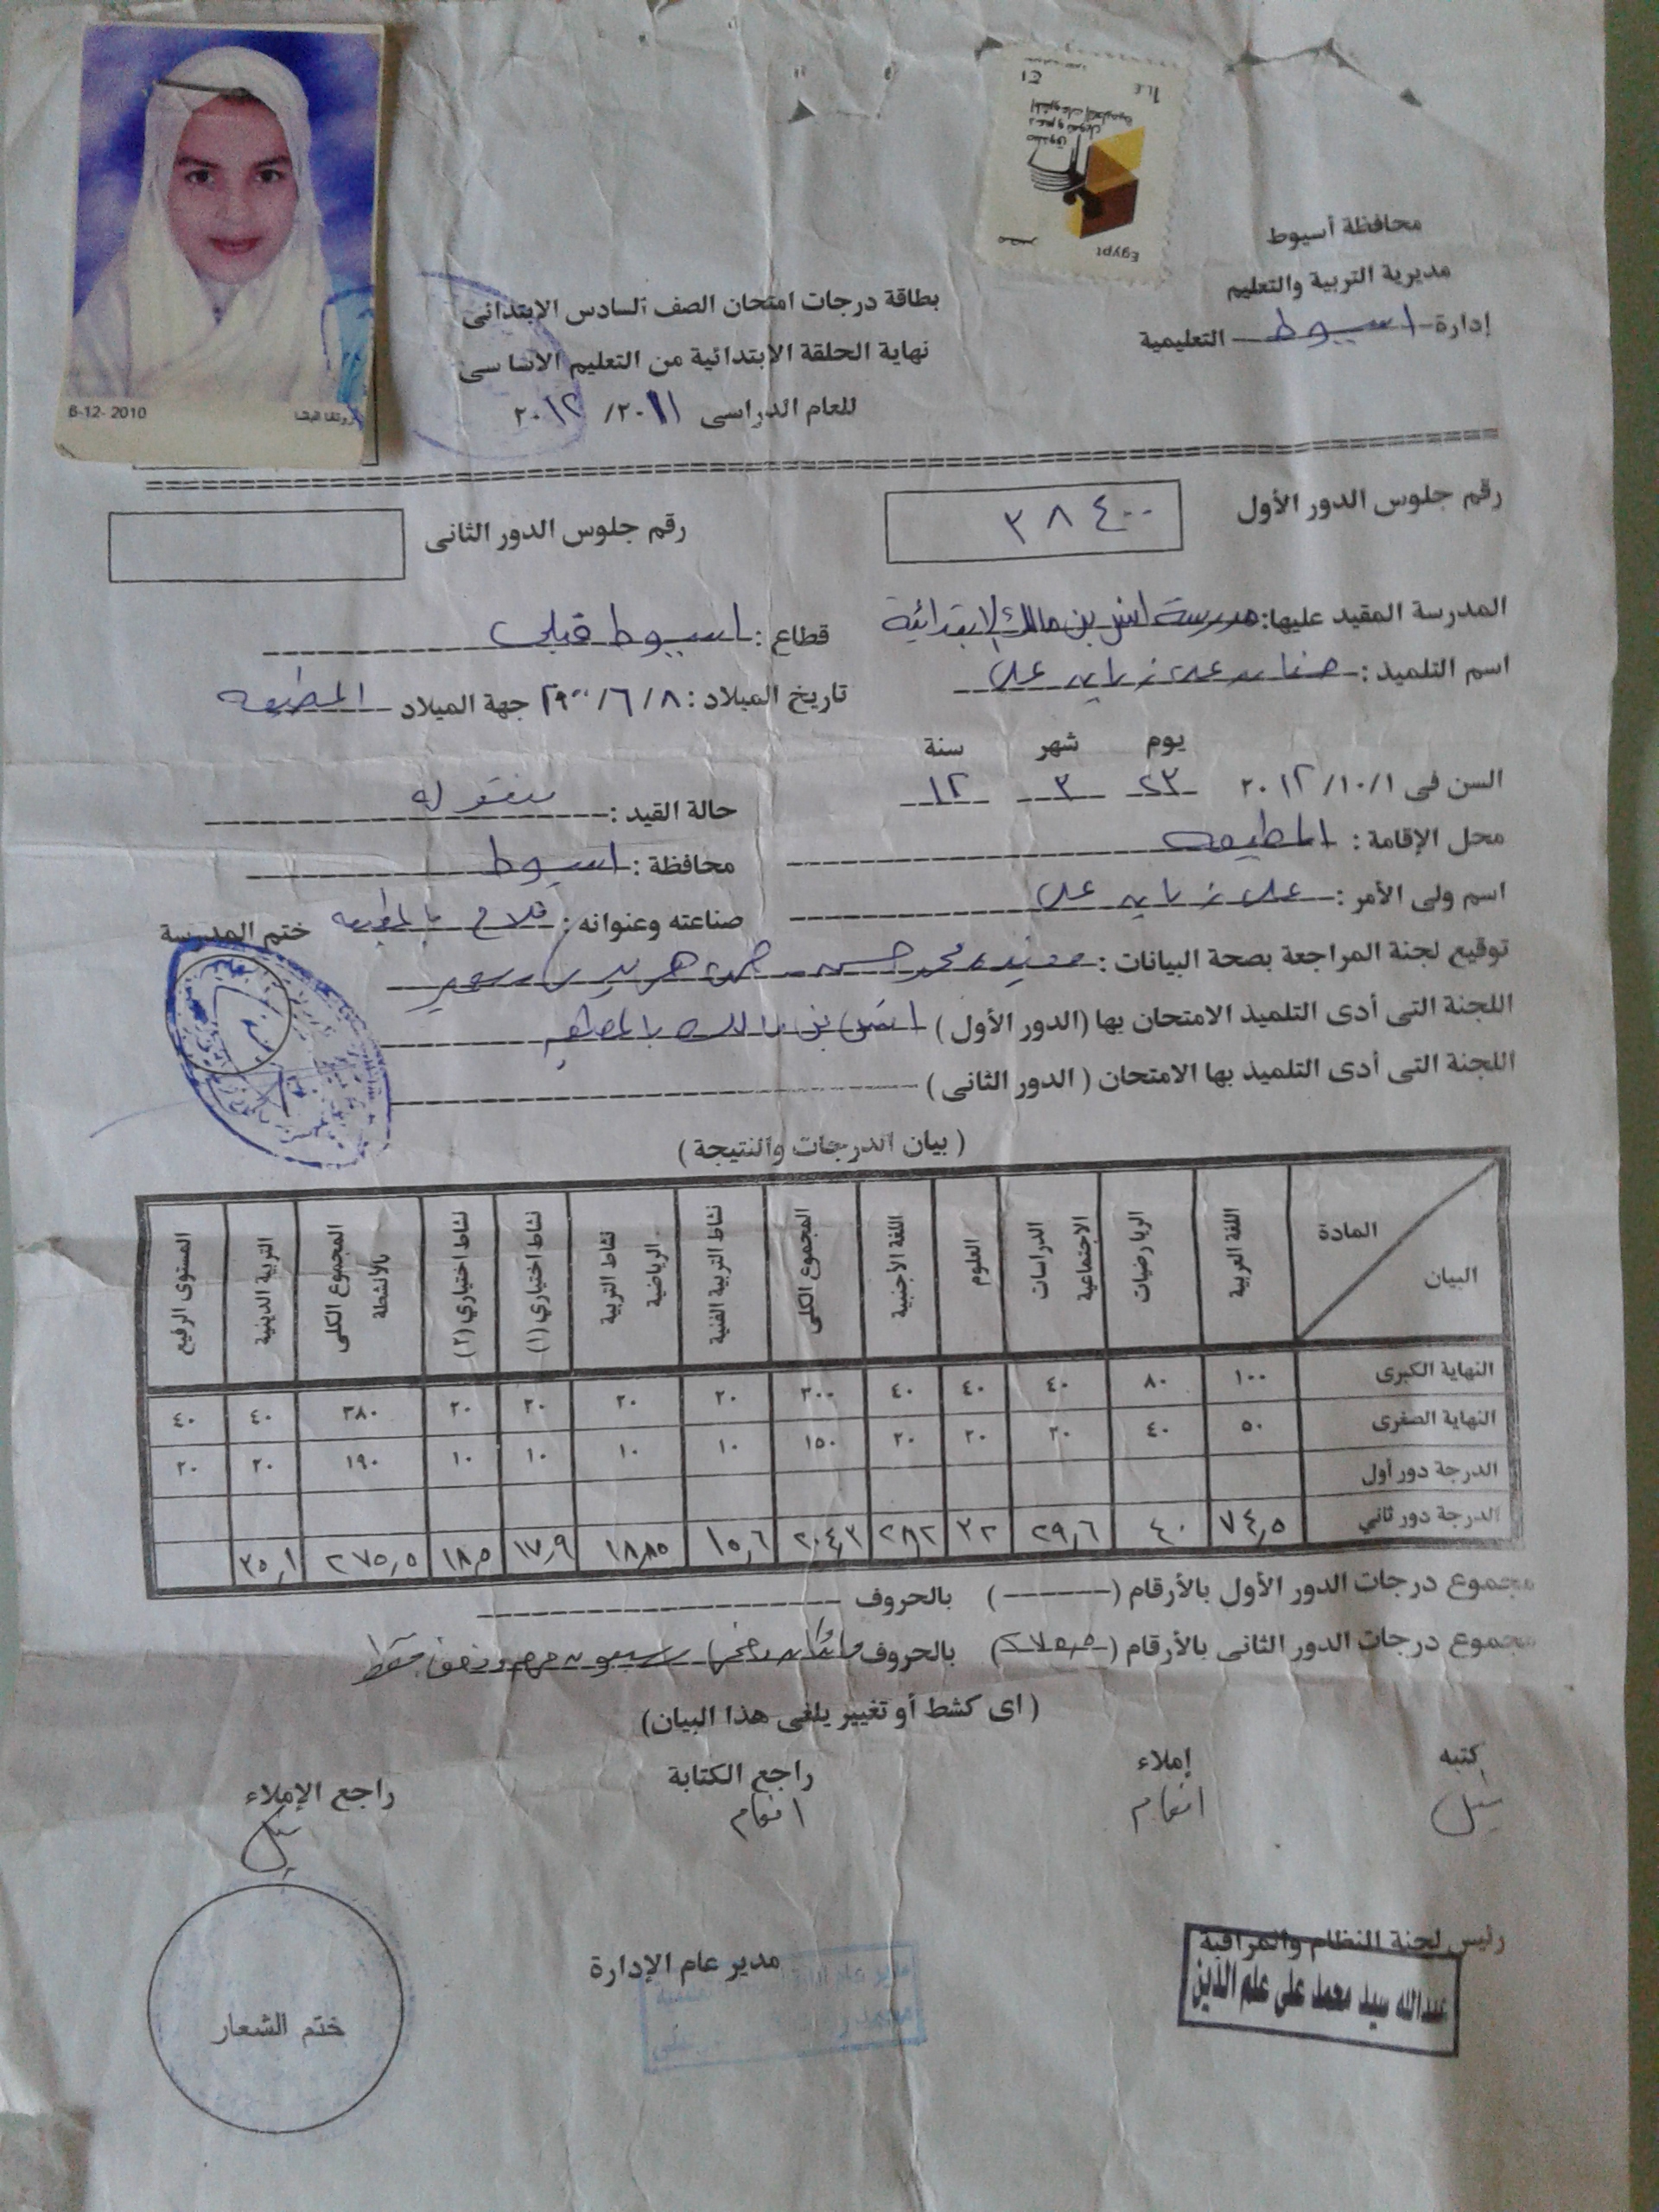 محافظة أسيوط
مديرية التربية والتعليم
إدارة اسيوط التعليمية
Egypt مصر
صندوق
دعم وتمويل
المشروعات التعليمية
1L.E ج١
بطاقة درجات امتحان الصف السادس الابتدائى
نهاية الحلقة الابتدائية من التعليم الاساسى
للعام الدراسى ٢٠١١/ ٢٠١٢
6-12- 2010
رقم جلوس الدور الأول ٣٨٤٠٠ رقم جلوس الدور الثانى
المدرسة المقيد عليها: مدرسة انس بن مالك الابتدائية قطاع : اسيوط قبلى
اسم التلميذ : على على تاريخ الميلاد : ٨ / ٦ / ٢٠٠٠ جهة الميلاد المطيعه
يوم شهر سنة
السن فى ١٠/١ /٢٠١٢ ٢٣ ٣ ١٢ حالة القيد : منقوله
محل الإقامة : المطيعه محافظة : اسيوط
اسم ولى الأمر : على على صناعته وعنوانه : فلاح بالمطيعه ختم المدرسة
توقيع لجنة المراجعة بصحة البيانات :
اللجنة التى أدى التلميذ الامتحان بها (الدور الأول ) انس بن مالك بالمطيعه
اللجنة التى أدى التلميذ بها الامتحان ( الدور الثانى )
( بيان الدرجات والنتيجة )
المادة البيان اللغة العربية الرياضيات الدراسات الاجتماعية العلوم اللغة الأجنبية المجموع الكلى نشاط التربية الفنية نشاط التربية الرياضية نشاط اختياري (١) نشاط اختياري (٢) المجموع الكلى بالأنشطة التربية الدينية المستوى الرفيع
النهاية الكبرى ١٠٠ ٨٠ ٤٠ ٤٠ ٤٠ ٣٠٠ ٢٠ ٢٠ ٢٠ ٢٠ ٣٨٠ ٤٠ ٤٠
النهاية الصغرى ٥٠ ٤٠ ٢٠ ٢٠ ٢٠ ١٥٠ ١٠ ١٠ ١٠ ١٠ ١٩٠ ٢٠ ٢٠
الدرجة دور أول
الدرجة دور ثاني ٧٤,٥ ٤٠ ٢٩,٦ ٣٢ ٢٨,٢ ٢٠٤,٣ ١٥,٦ ١٨,٨٥ ١٧,٩ ١٨,٥ ٢٧٥,٥ ٣٥,١
مجموع درجات الدور الأول بالأرقام ( ) بالحروف
مجموع درجات الدور الثانى بالأرقام (٢٧٥,٥) بالحروف مائتان وخمسة وسبعون درجة ونصف فقط
( اى كشط أو تغيير يلغى هذا البيان)
كتبه إملاء راجع الكتابة راجع الإملاء
انعام انعام
رئيس لجنة النظام والمراقبة مدير عام الإدارة ختم الشعار
عبدالله سيد محمد على علم الدين